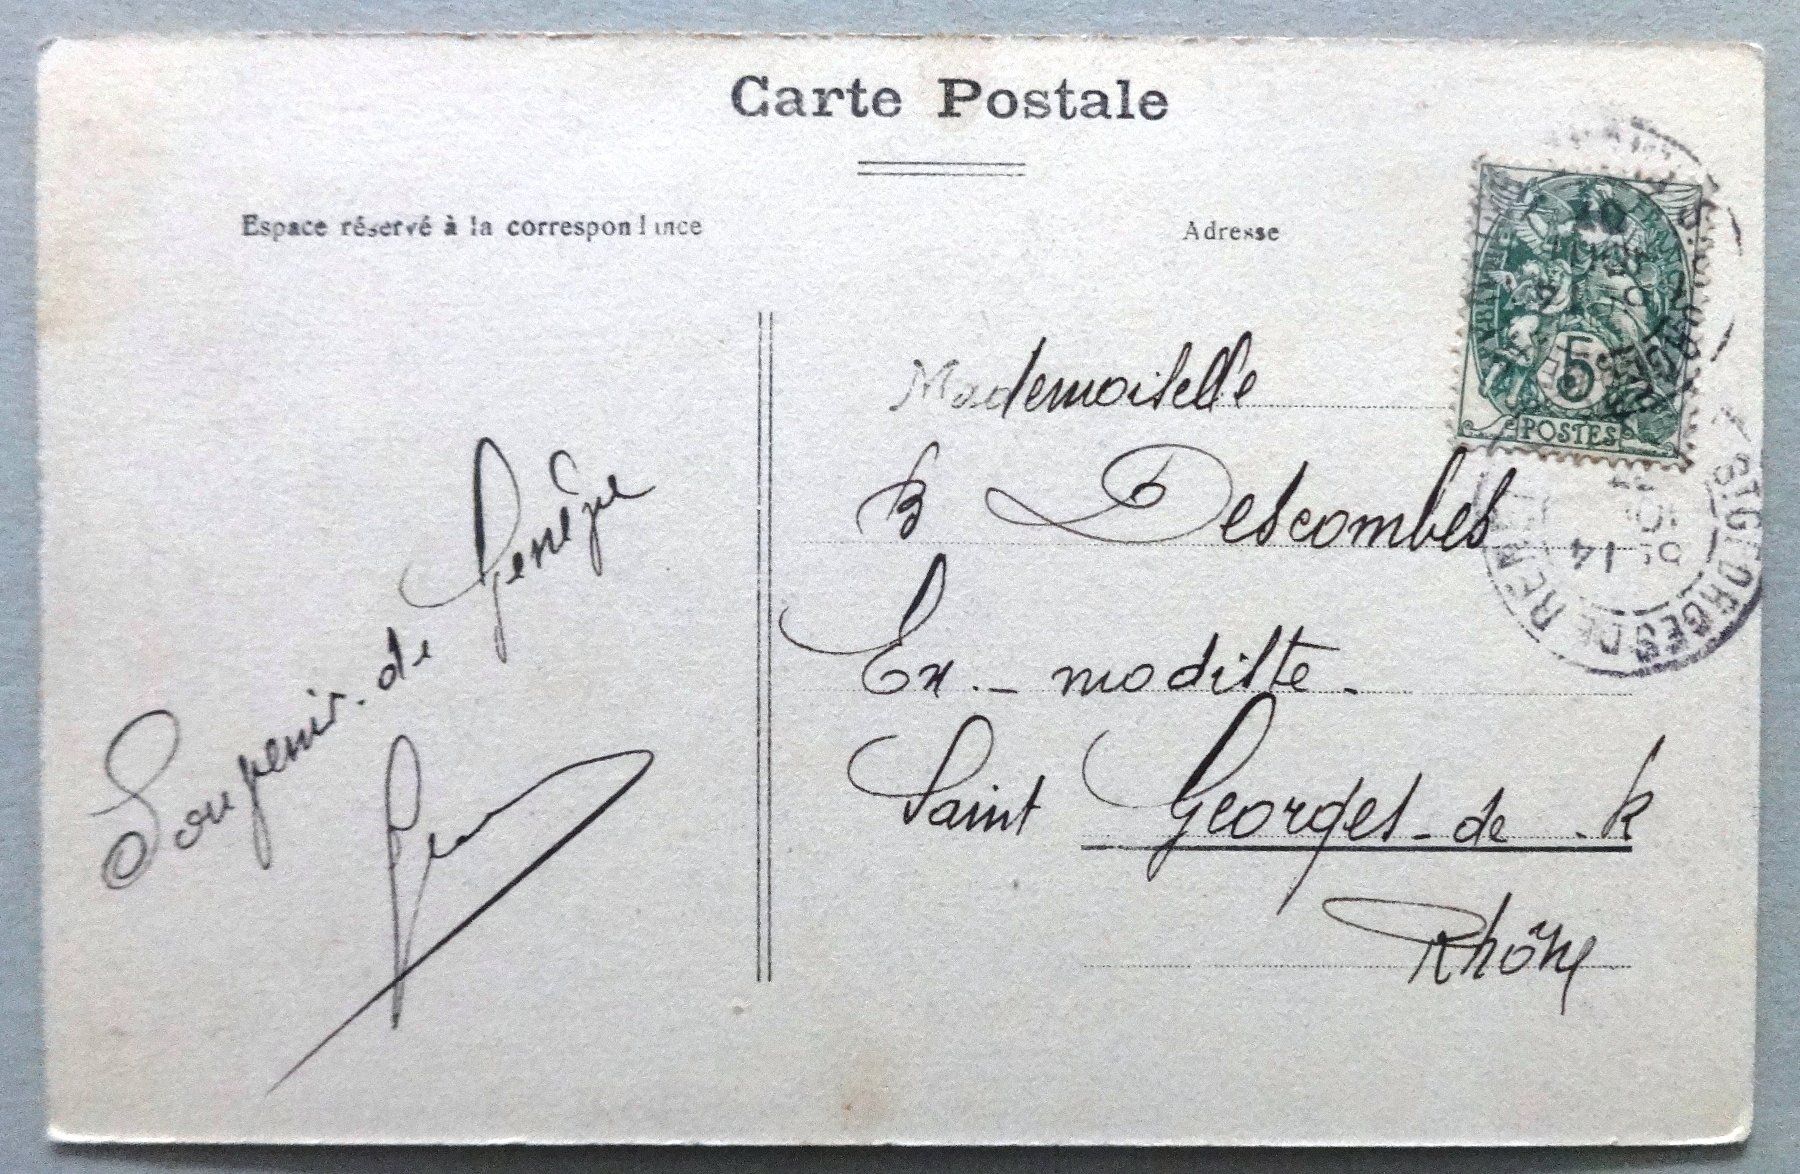 Carte Postale
Espace réservé à la correspondance
Adresse
Souvenir de
Mademoiselle
B Descombes
Ex. - modiste -
Saint Georges - de - R
Rhône
5
POSTES
ST GEORGES DE REN
14